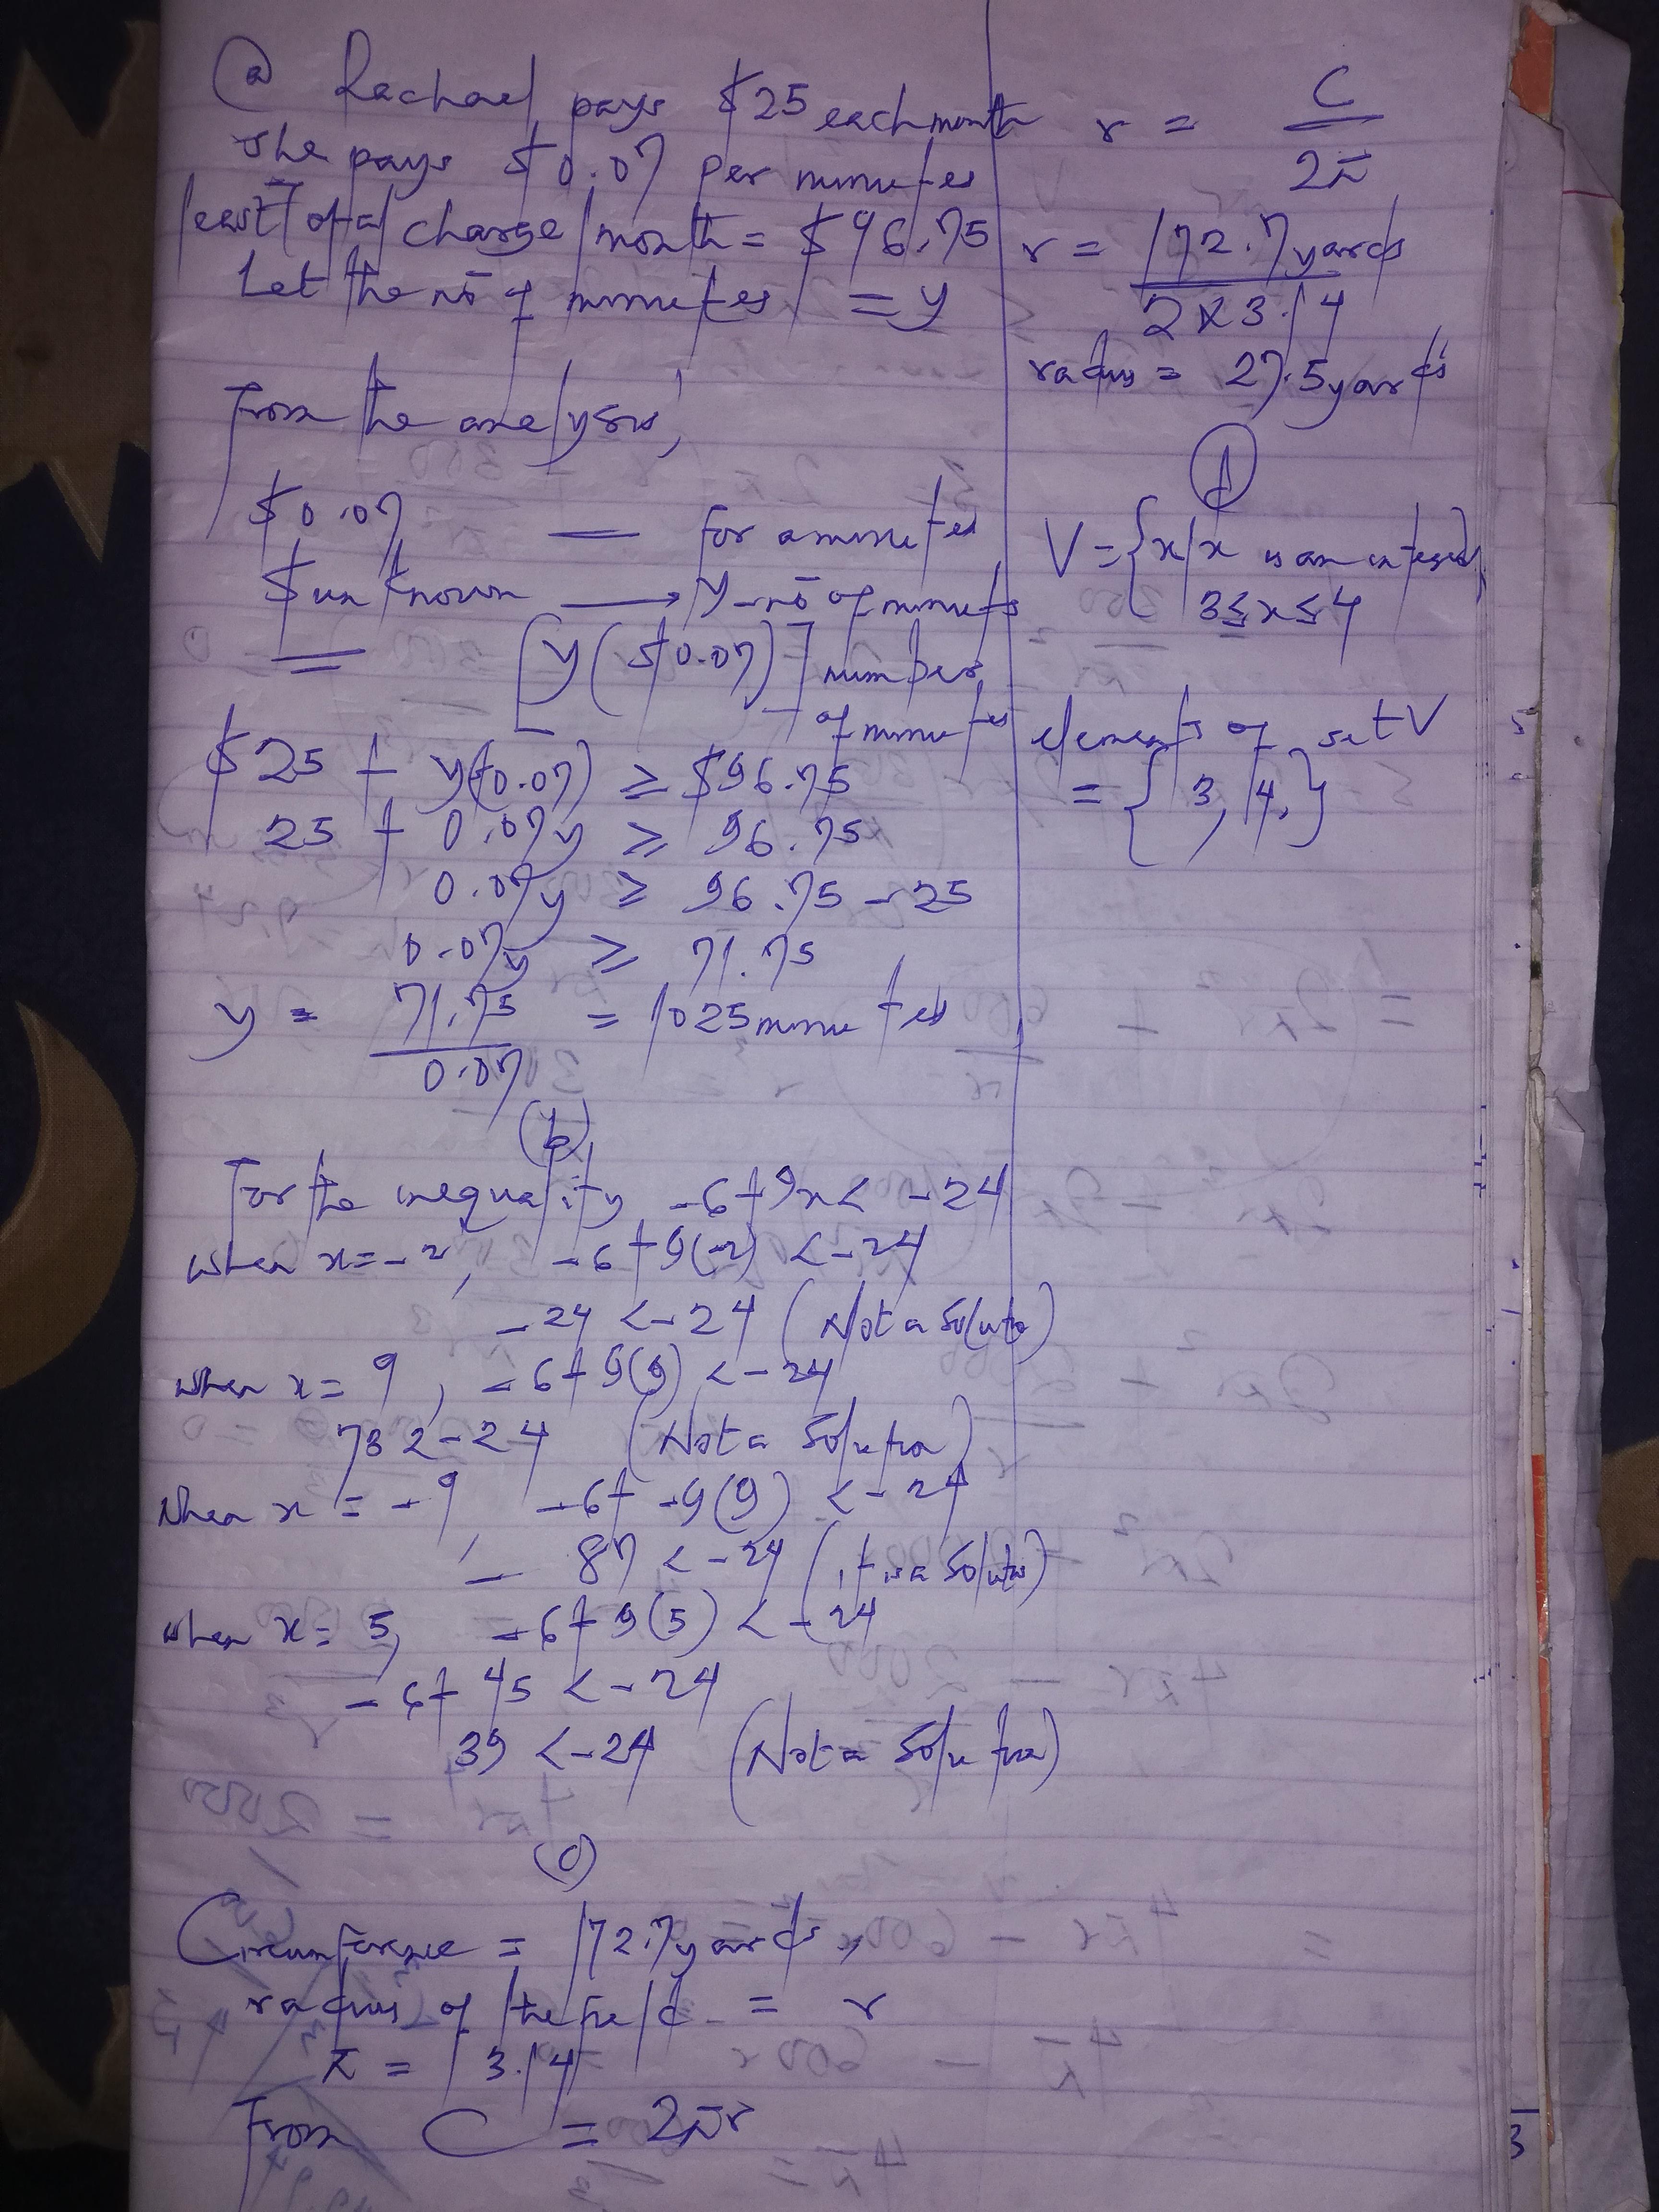 (a) Rachael pays $25 each month
she pays $0.07 per minutes
least of a charge/month = $96.75
Let the no of minutes = y
From the analysis,
$0.07 — for a minutes
$unknown → y - no of minutes
= [y($0.07)] number
of minutes
$25 + y(0.07) ≥ $96.75
25 + 0.07y ≥ 96.75
0.07y ≥ 96.75 - 25
0.07y ≥ 71.75
y = 71.75 / 0.07 = 1025 minutes
(b)
For the inequality -6+9x < -24
when x = -2, -6+9(-2) < -24
-24 < -24 (Not a Soluto)
when x = 9, -6+9(9) < -24
75 < -24 (Not a Solution)
when x = -9, -6+-9(9) < -24
- 87 < -24 (it is a Soluto)
when x = 5, -6+9(5) < -24
-6+45 < -24
39 < -24 (Not a Solution)
(c)
Circumference = 172.7 yards,
radius of the field = r
π = 3.14
From C = 2πr
r = C / 2π
r = 172.7 yards / 2 x 3.14
radius = 27.5 yards
(d)
V = {x/x is an integer,
3 ≤ x ≤ 4
elements of set V
= {3, 4,}
5
3